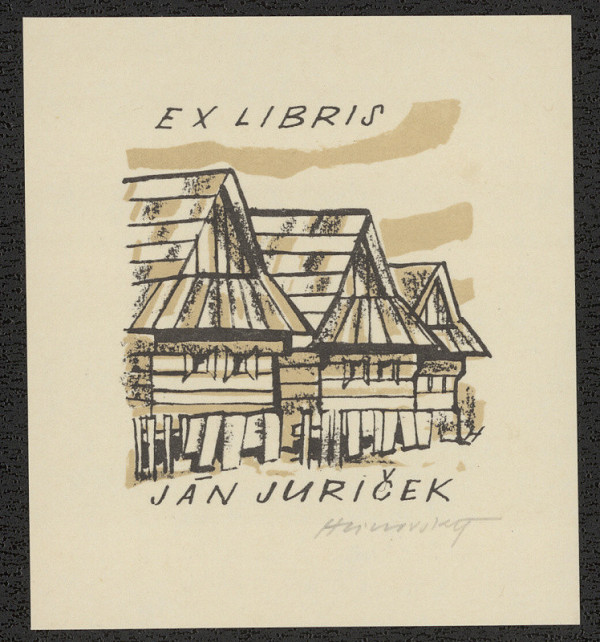 EX LIBRIS
JÁN JURIČEK